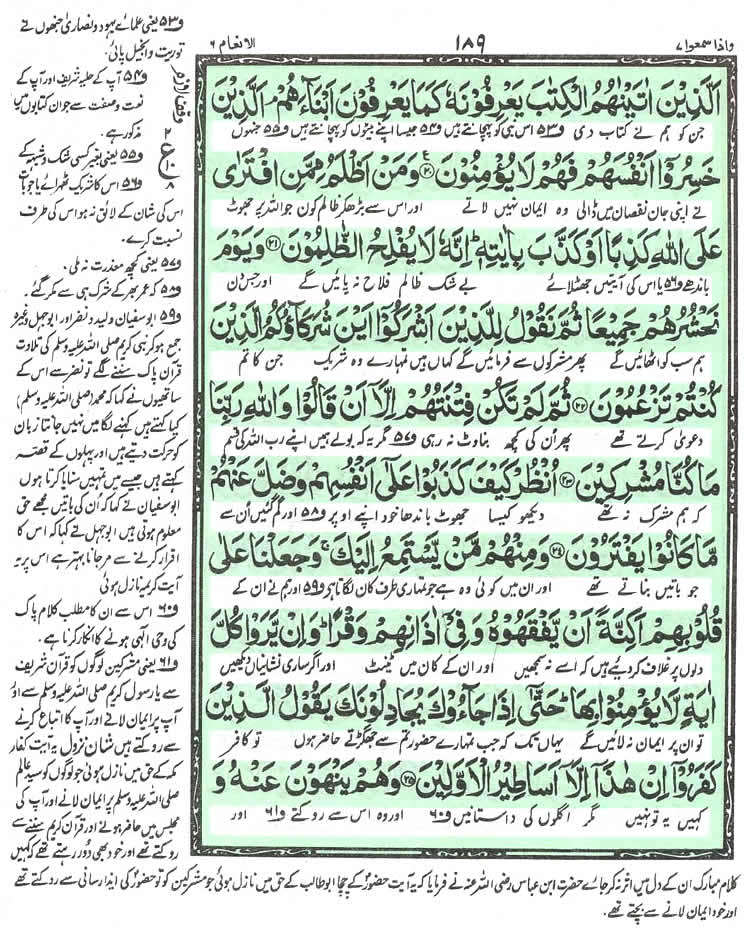 واذا سمعوا ٧
١٨٩
الانعام ٦
اَلَّذِيْنَ اٰتَيْنٰهُمُ الْكِتٰبَ يَعْرِفُوْنَهٗ كَمَا يَعْرِفُوْنَ اَبْنَآءَهُمْ ۘ اَلَّذِيْنَ
جن کو ہم نے کتاب دی و۵۳ اس نبی کو پہچانتے ہیں و۵۴ جیسا اپنے بیٹوں کو پہچانتے ہیں و۵۵ جنہوں
خَسِرُوْٓا اَنْفُسَهُمْ فَهُمْ لَا يُؤْمِنُوْنَ ﴿٢٠﴾ وَمَنْ اَظْلَمُ مِمَّنِ افْتَرٰى
نے اپنی جان نقصان میں ڈالی وہ ایمان نہیں لاتے اور اس سے بڑھ کر ظالم کون جو اللہ پر جھوٹ
عَلَى اللّٰهِ كَذِبًا اَوْ كَذَّبَ بِاٰيٰتِهٖ ؕ اِنَّهٗ لَا يُفْلِحُ الظّٰلِمُوْنَ ﴿٢١﴾ وَيَوْمَ
باندھے و۵۶ یا اس کی آیتیں جھٹلائے بے شک ظالم فلاح نہ پائیں گے اور جس دن
نَحْشُرُهُمْ جَمِيْعًا ثُمَّ نَقُوْلُ لِلَّذِيْنَ اَشْرَكُوْٓا اَيْنَ شُرَكَآؤُكُمُ الَّذِيْنَ
ہم سب کو اٹھائیں گے پھر مشرکوں سے فرمائیں گے کہاں ہیں تمہارے وہ شریک جن کا تم
كُنْتُمْ تَزْعُمُوْنَ ﴿٢٢﴾ ثُمَّ لَمْ تَكُنْ فِتْنَتُهُمْ اِلَّآ اَنْ قَالُوْا وَاللّٰهِ رَبِّنَا
دعویٰ کرتے تھے پھر ان کی کچھ بناوٹ نہ رہی و۵۷ مگر یہ کہ بولے ہمیں اپنے رب اللہ کی قسم
مَا كُنَّا مُشْرِكِيْنَ ﴿٢٣﴾ اُنْظُرْ كَيْفَ كَذَبُوْا عَلٰٓى اَنْفُسِهِمْ وَضَلَّ عَنْهُمْ
کہ ہم مشرک نہ تھے دیکھو کیسا جھوٹ باندھا خود اپنے اوپر و۵۸ اور گم گئیں ان سے
مَّا كَانُوْا يَفْتَرُوْنَ ﴿٢٤﴾ وَمِنْهُمْ مَّنْ يَّسْتَمِعُ اِلَيْكَ ۚ وَجَعَلْنَا عَلٰى
جو باتیں بناتے تھے اور ان میں کوئی وہ ہے جو تمہاری طرف کان لگاتا ہے و۵۹ اور ہم نے ان کے
قُلُوْبِهِمْ اَكِنَّةً اَنْ يَّفْقَهُوْهُ وَفِيْٓ اٰذَانِهِمْ وَقْرًا ؕ وَاِنْ يَّرَوْا كُلَّ
دلوں پر غلاف کر دیے ہیں کہ اسے نہ سمجھیں اور ان کے کان میں ٹینٹ اور اگر ساری نشانیاں دیکھیں
اٰيَةٍ لَّا يُؤْمِنُوْا بِهَا ؕ حَتّٰٓى اِذَا جَآءُوْكَ يُجَادِلُوْنَكَ يَقُوْلُ الَّذِيْنَ
تو ان پر ایمان نہ لائیں گے یہاں تک کہ جب تمہارے حضور تم سے جھگڑتے حاضر ہوں تو کافر
كَفَرُوْٓا اِنْ هٰذَآ اِلَّآ اَسَاطِيْرُ الْاَوَّلِيْنَ ﴿٢٥﴾ وَهُمْ يَنْهَوْنَ عَنْهُ وَ
کہیں یہ تو نہیں مگر اگلوں کی داستانیں و۶۰ اور وہ اس سے روکتے و۶۱ اور
و۵۳ یعنی علمائے یہود و نصاریٰ جنھوں نے
توریت و انجیل پائی۔
و۵۴ آپ کے حلیہ شریف اور آپ کے
نعت و صفت سے جو ان کتابوں میں
مذکور ہے۔
و۵۵ یعنی بغیر کسی شک و شبہہ کے
و۵۶ اس کا شریک ٹھہرائے یا جو بات
اس کی شان کے لائق نہ ہو اس کی طرف
نسبت کرے۔
و۵۷ یعنی کچھ معذرت نہ ملی۔
و۵۸ کہ عمر بھر کے شرک ہی سے مکر گئے۔
و۵۹ ابو سفیان ولید و نضر اور ابو جہل وغیرہ
جمع ہو کر نبی کریم صلی اللہ علیہ وسلم کی تلاوت
قرآن پاک سننے لگے تو نضر سے اس کے
ساتھیوں نے کہا کہ محمد (صلی اللہ علیہ وسلم)
کیا کہتے ہیں کہنے لگا میں نہیں جانتا زبان
کو حرکت دیتے ہیں اور پہلوں کے قصہ
کہتے ہیں جیسے میں تمہیں سنایا کرتا ہوں
ابو سفیان نے کہا کہ ان کی باتیں مجھے حق
معلوم ہوتی ہیں ابو جہل نے کہا کہ اس کا
اقرار کرنے سے مر جانا بہتر ہے اس پر یہ
آیت کریمہ نازل ہوئی
و۶۰ اس سے ان کا مطلب کلام پاک
کی وحی الٰہی ہونے کا انکار کرنا ہے۔
و۶۱ یعنی مشرکین لوگوں کو قرآن شریف
سے یا رسول کریم صلی اللہ علیہ وسلم سے اور
آپ پر ایمان لانے اور آپ کا اتباع کرنے
سے روکتے ہیں شان نزول یہ آیت کفار
مکہ کے حق میں نازل ہوئی جو لوگوں کو سید عالم
صلی اللہ علیہ وسلم پر ایمان لانے اور آپ کی
مجلس میں حاضر ہونے اور قرآن کریم سننے سے
روکتے تھے اور خود بھی دور رہتے تھے کہ کہیں
کلام مبارک ان کے دل میں اثر نہ کر جائے حضرت ابن عباس رضی اللہ عنہ نے فرمایا کہ یہ آیت حضور کے چچا ابو طالب کے حق میں نازل ہوئی جو مشرکین کو تو حضور کی ایذا رسانی سے روکتے تھے
اور خود ایمان لانے سے بچتے تھے۔